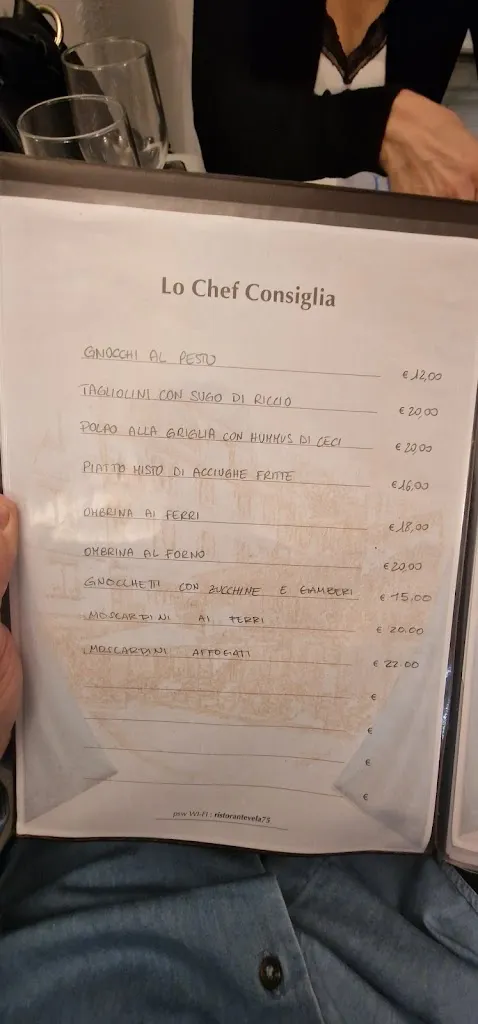 Lo Chef Consiglia
GNOCCHI AL PESTO € 12,00
TAGLIOLINI CON SUGO DI RICCIO € 20,00
POLPO ALLA GRIGLIA CON HUMMUS DI CECI € 20,00
PIATTO MISTO DI ACCIUGHE FRITTE € 16,00
OMBRINA AI FERRI € 18,00
OMBRINA AL FORNO € 20,00
GNOCCHETTI CON ZUCCHINE E GAMBERI € 15,00
MOSCARDINI AI FERRI € 20.00
MOSCARDINI AFFOGATI € 22.00
€
€
€
€
psw WI-FI : ristorantevela75